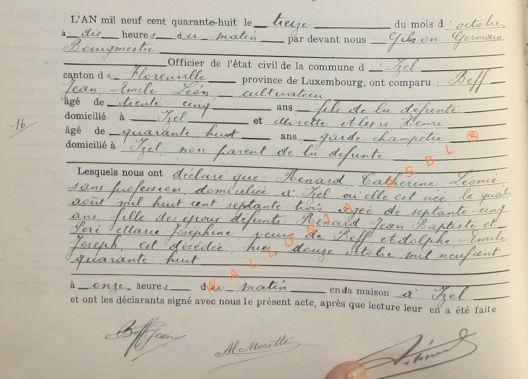 L'AN mil neuf cent quarante-huit le treize du mois d'octobre
à dix heures du matin par devant nous Gilson Germain
Bourgmestre
Officier de l'état civil de la commune d'Izel
canton de Florenville province de Luxembourg, ont comparu : Beff
Jean Emile Léon cultivateur
âgé de trente cinq ans fils de la défunte
domicilié à Izel et Morette Alexis Henri
16
âgé de quarante huit ans garde champêtre
domicilié à Izel non parent de la défunte
Lesquels nous ont déclaré que : Renard Catherine Léonie
sans profession, domiciliée à Izel où elle est née le quatre
août mil huit cent septante trois, âgée de septante cinq
ans, fille des époux défunts Renard Jean Baptiste et
Marie Joséphine veuve de Beff Adolphe Emile
Joseph, est décédée hier douze octobre mil neuf cent
quarante huit
à onze heures du matin en sa maison à Izel
et ont les déclarants signé avec nous le présent acte, après que lecture leur en a été faite
Beff Jean
Al Morette
WALLONIA ASBL ®